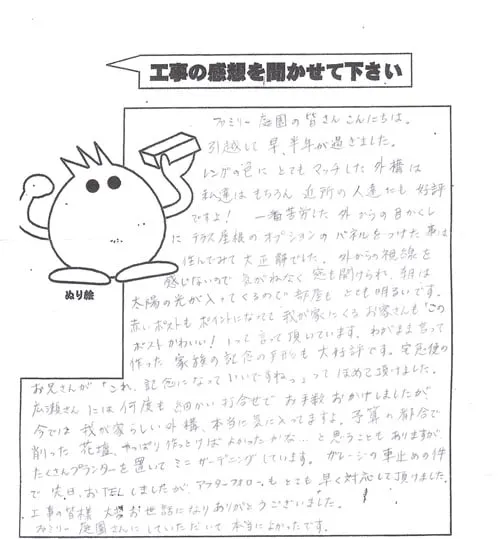 工事の感想を聞かせて下さい
ファミリー庭園の皆さんこんにちは。
引越して早、半年が過ぎました。
レンガの色にとてもマッチした外構は
私達はもちろん近所の人達にも好評
ですよ! 一番苦労した外からの目かくし
にテラス屋根のオプションのパネルをつけた事は
住んでみて大正解でした。外からの視線を
感じないので気がねなく窓も開けられ、朝は
太陽の光が入ってくるので部屋もとても明るいです。
赤いポストもポイントになってて我が家にくるお客さんも「この
ポストかわいい!」って言って頂いています。わがまま言って
作った家族の記念の手形も大好評です。宅急便の
お兄さんが「これ、記念になっていいですねっ」ってほめて頂けました。
広瀬さんには何度も細かい打合せでお手数おかけしましたが
今では我が家らしい外構、本当に気に入ってますよ。予算の都合で
削った花壇、やっぱり作っとけばよかったかな…と思うこともありますが、
たくさんプランターを置いてミニガーデニングしています。ガレージの車止めの件
で先日、お TELしましたがアフターフォローもとても早く対応して頂けました。
工事の皆様大変お世話になりありがとうございました。
ファミリー庭園さんにしていただいて本当によかったです。
ぬり絵